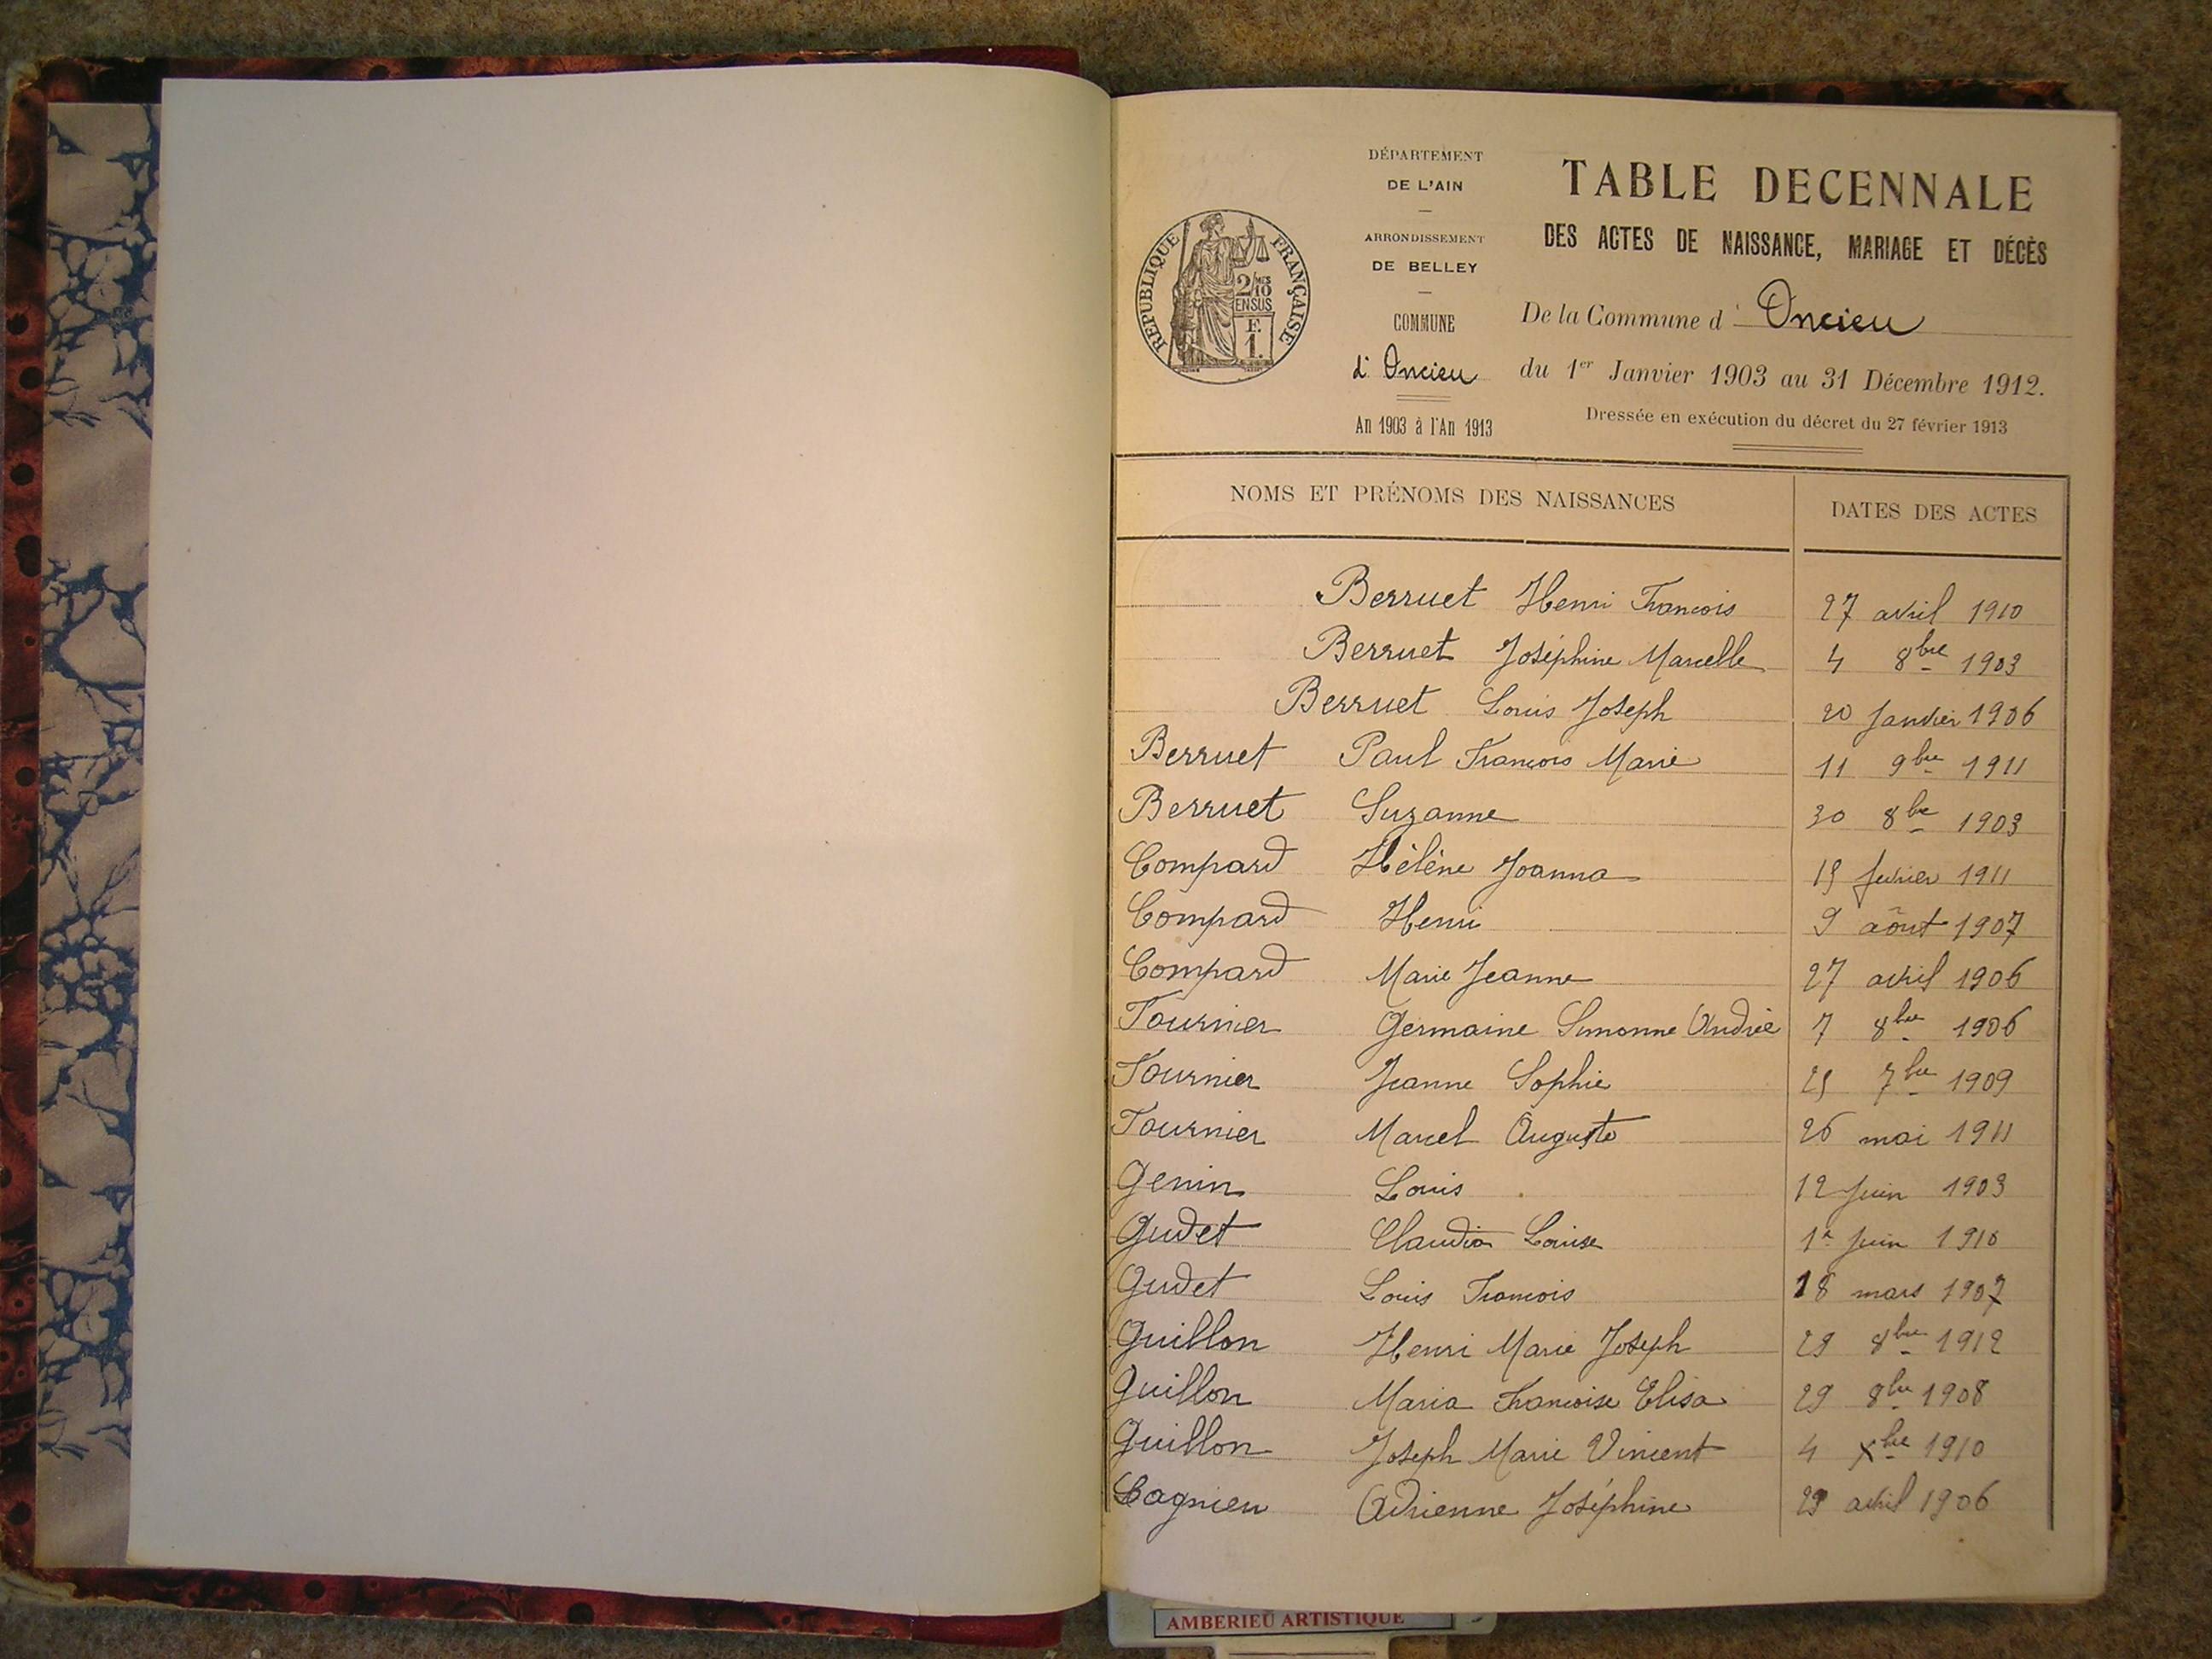 DÉPARTEMENT
DE L'AIN
ARRONDISSEMENT
DE BELLEY
COMMUNE
d' Oncieu
An 1903 à l'An 1913
REPUBLIQUE FRANÇAISE
2/10
EN SUS
F.
1.
TABLE DECENNALE
DES ACTES DE NAISSANCE, MARIAGE ET DÉCÈS
De la Commune d' Oncieu
du 1er Janvier 1903 au 31 Décembre 1912.
Dressée en exécution du décret du 27 février 1913
NOMS ET PRÉNOMS DES NAISSANCES DATES DES ACTES
Berruet Henri François 27 avril 1910
Berruet Joséphine Marcelle 4 8bre 1903
Berruet Louis Joseph 20 Janvier 1906
Berruet Paul François Marie 11 9bre 1911
Berruet Suzanne 30 8bre 1903
Compard Hélène Joanna février 1911
Compard Henri 9 août 1907
Compard Marie Jeanne 27 avril 1906
Tournier Germaine Simonne Andrée 7 8bre 1906
Tournier Jeanne Sophie 7bre 1909
Tournier Marcel Auguste 26 mai 1911
Genin Louis 12 Juin 1903
Gudet Claudia Louise 1er Juin 1910
Gudet Louis François 18 mars 1907
Guillon Henri Marie Joseph 29 8bre 1912
Guillon Maria Françoise Elisa 29 8bre 1908
Guillon Joseph Marie Vincent 4 Xbre 1910
Lagnieu Adrienne Joséphine avril 1906
AMBERIEU ARTISTIQUE